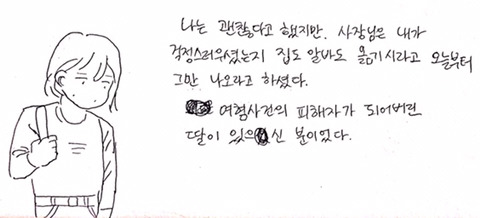 나는 괜찮다고 했지만. 사장님은 내가
걱정스러우셨는지 집도 알바도 옮기시라고 오늘부터
그만 나오라고 하셨다.
여혐사건의 피해자가 되어버린
딸이 있으신 분이었다.